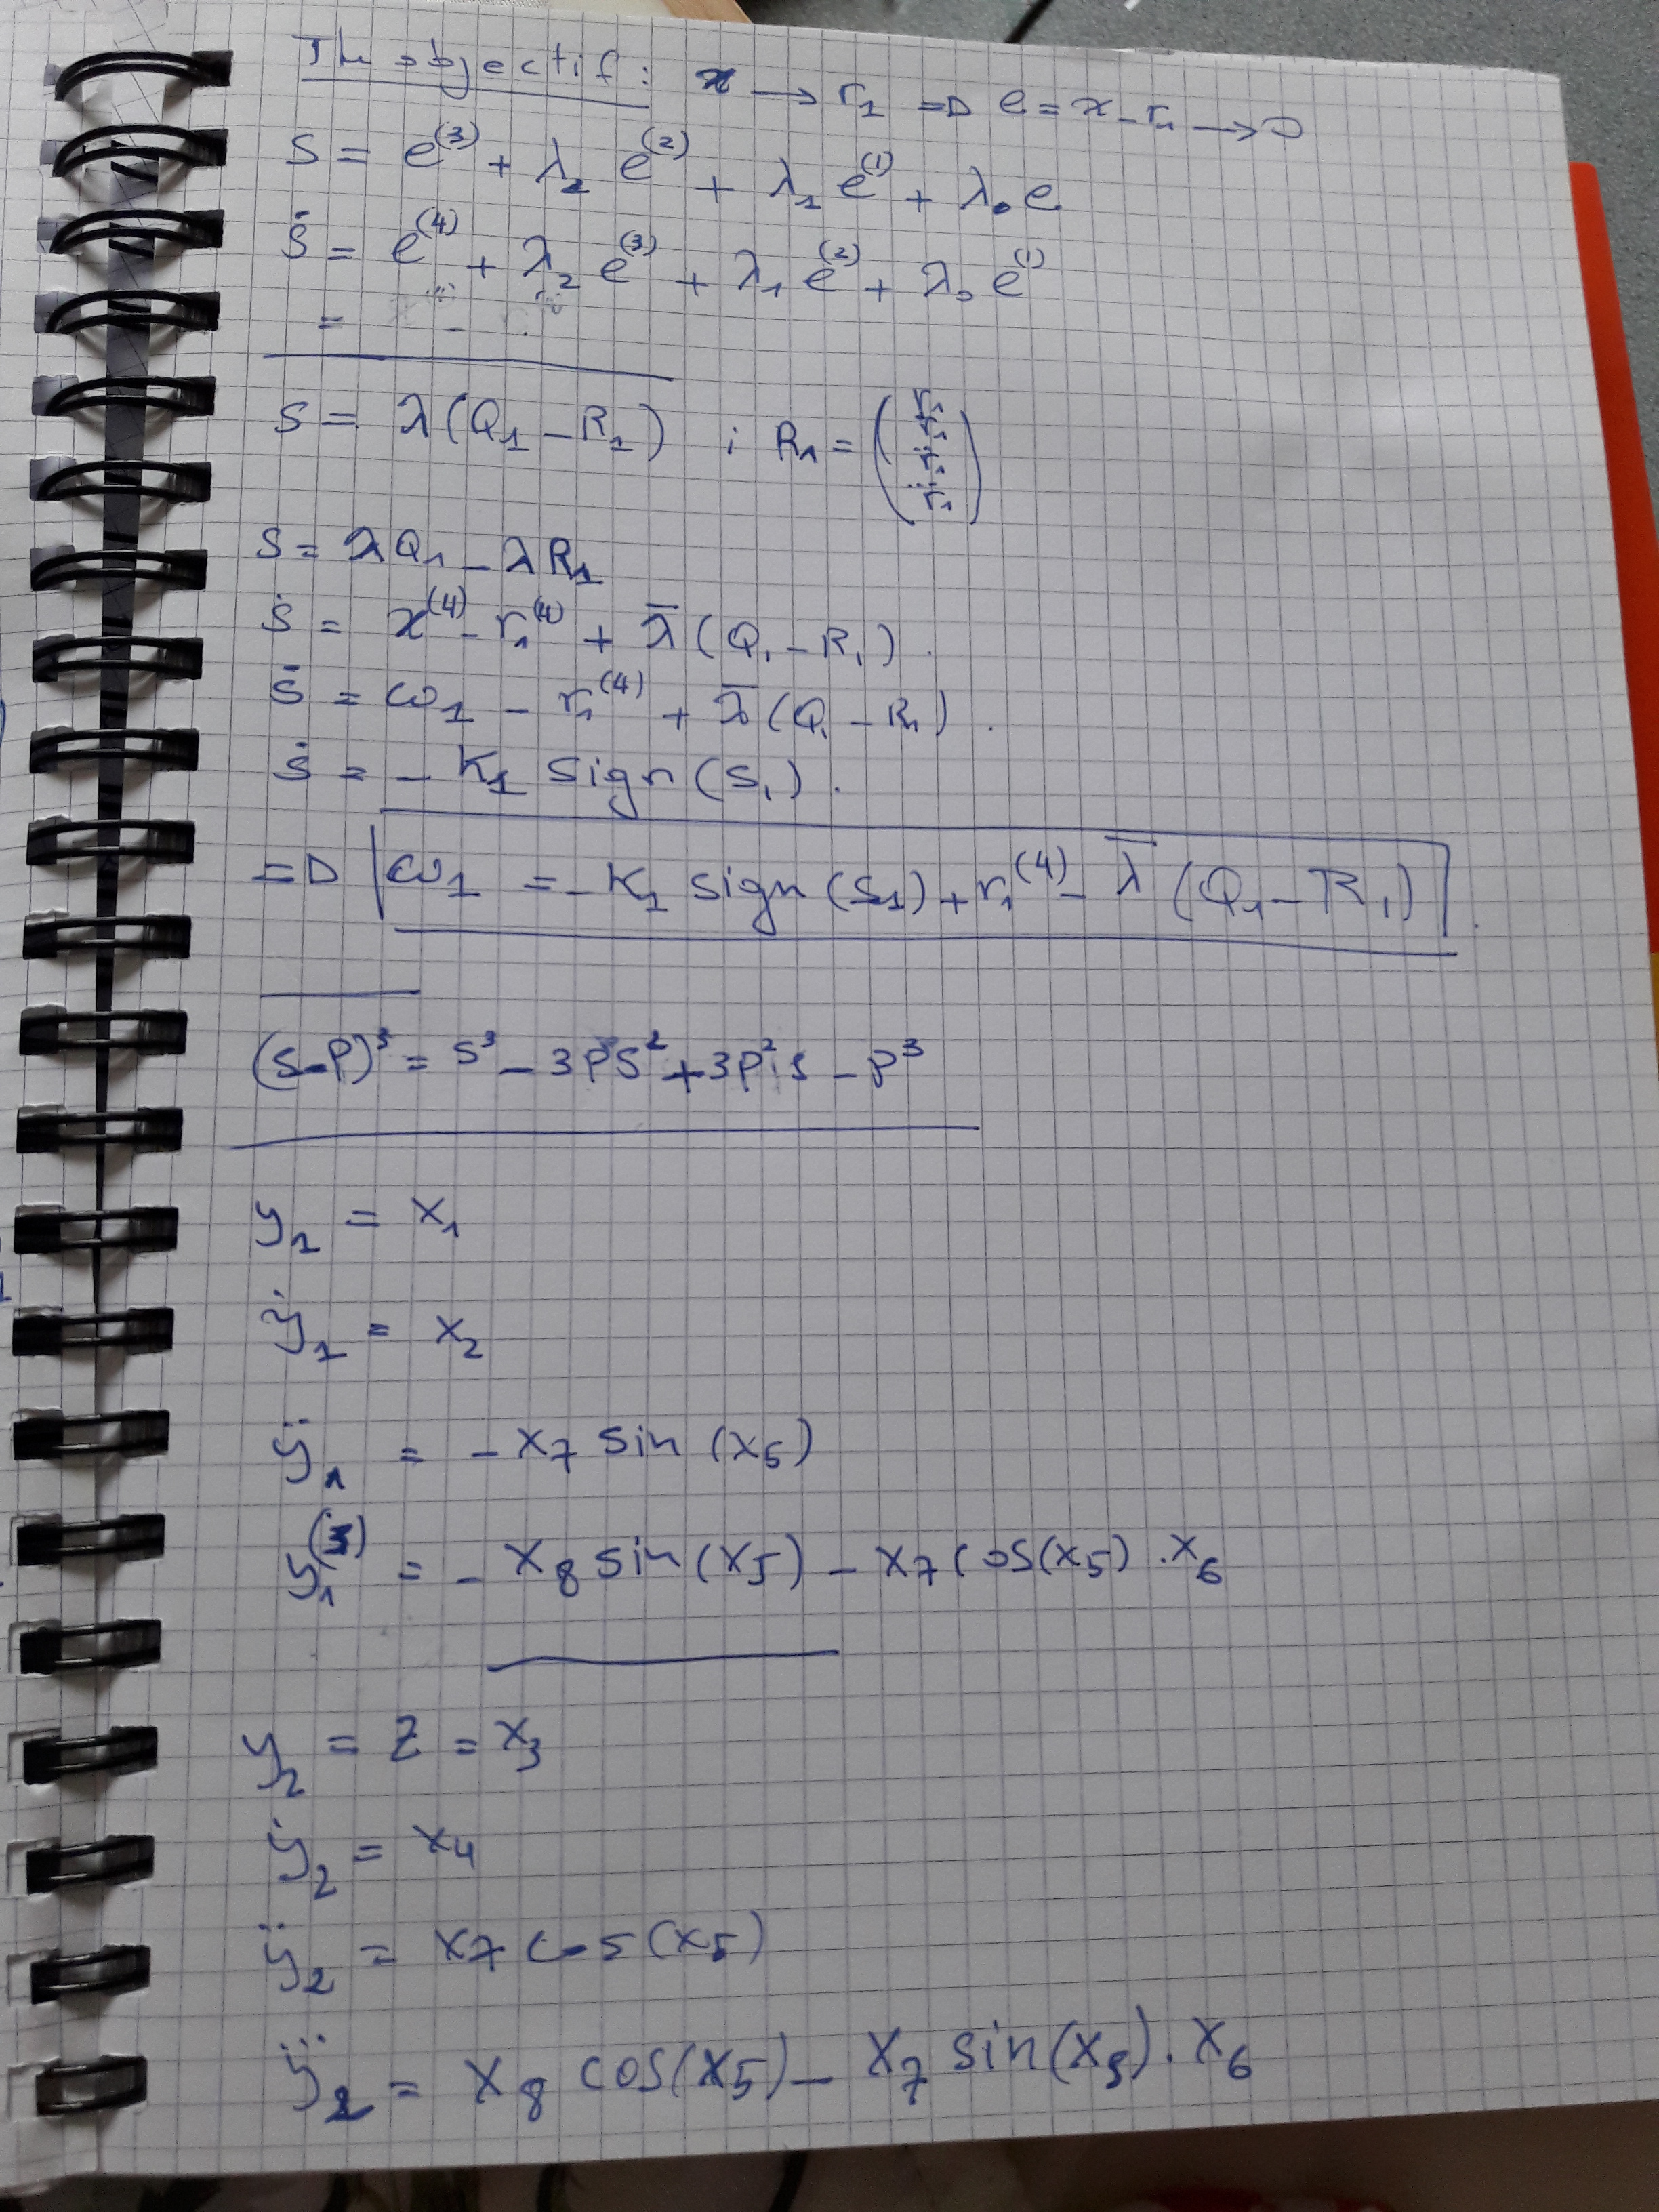 The objectif : x → r₁ => e = x - r₁ → 0
S = e⁽³⁾ + λ₂ e⁽²⁾ + λ₁ e⁽¹⁾ + λ₀ e
Ṡ = e⁽⁴⁾ + λ₂ e⁽³⁾ + λ₁ e⁽²⁾ + λ₀ e⁽¹⁾
= -
S = λ(Q₁ - R₁) ; R₁ =
S = λQ₁ - λR₁
Ṡ = x⁽⁴⁾ - r₁⁽⁴⁾ + λ̄ (Q₁ - R₁) .
Ṡ = ω₁ - r₁⁽⁴⁾ + λ̄ (Q₁ - R₁) .
Ṡ = - K₁ sign (S₁) .
=> ω₁ = - K₁ sign (S₁) + r₁⁽⁴⁾ - λ̄ (Q₁ - R₁) .
(S-P)³ = S³ - 3PS² + 3P²S - P³
y₁ = x₁
ẏ₁ = x₂
ÿ₁ = - x₇ sin (x₅)
y₁⁽³⁾ = - x₈ sin (x₅) - x₇ cos(x₅) . x₆
y₂ = Z = x₃
ẏ₂ = x₄
ÿ₂ = x₇ cos (x₅)
y⃛₂ = x₈ cos(x₅) - x₇ sin(x₅) . x₆